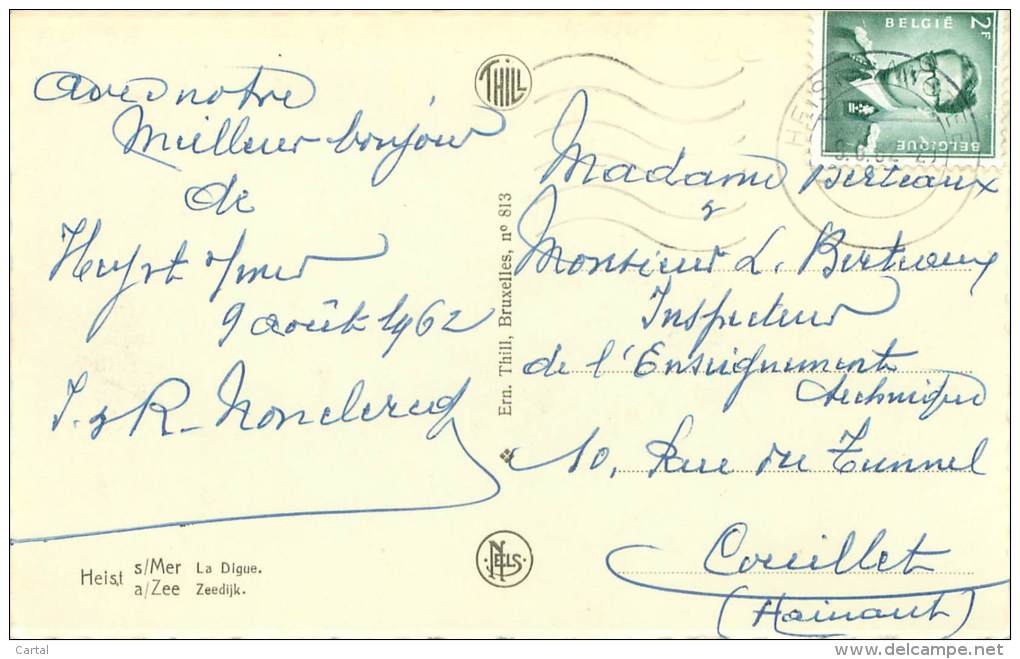 avec notre
Meilleur bonjour
de
Heyst s/mer
9 août 1962
J. & R. Nonclercq
Heist s/Mer La Digue.
a/Zee Zeedijk.
THILL
Ern. Thill, Bruxelles, nº 813
NELS
BELGIË
2F
BELGIQUE
HEIST
Madame Berteaux
&
Monsieur L. Berteaux
Inspecteur
de l'Enseignement
technique
10, Rue du Tunnel
Couillet
(Hainaut)
Cartal
www.delcampe.net